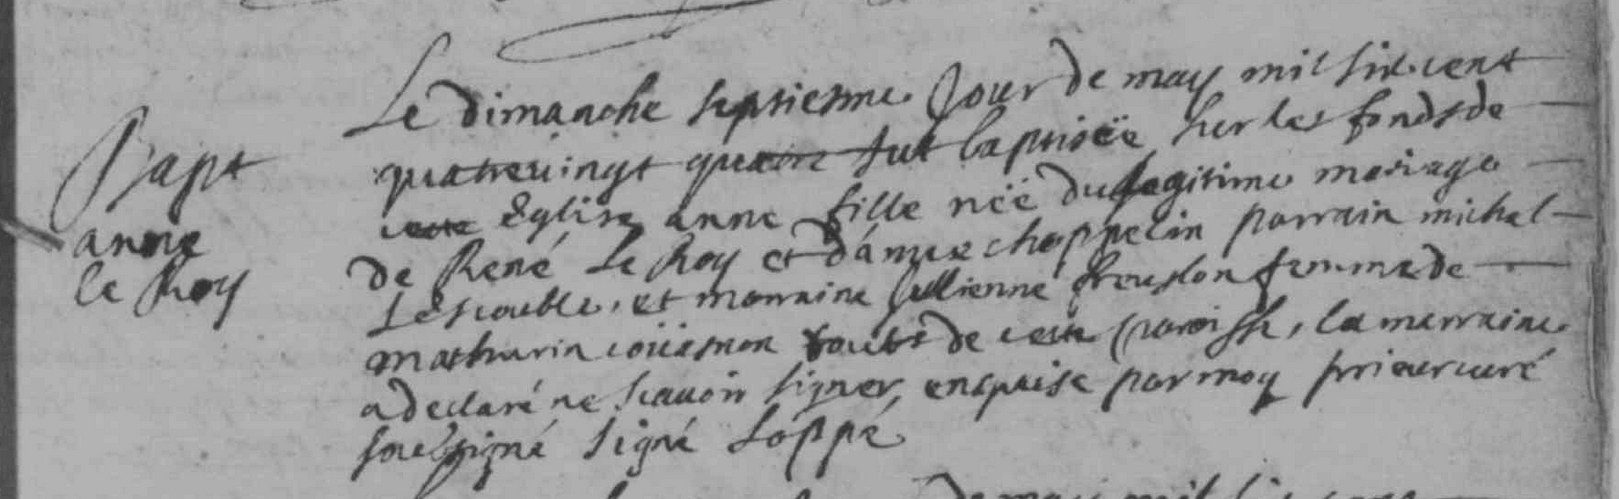 Bapt
anne
le Roy
Le dimanche septiesme Jour de may mil six cent
quatrevingt quatre fut baptisëe sur les fonds de
cette Eglise anne fille nëe du legitime mariage
de René Le Roy et d'anne chappelin parrain michel
Lescouble, et marraine Jullienne freuslon femme de
mathurin coüesnon touts de cette paroisse, la marraine
a declaré ne scavoir signer, enquise par moy prieur curé
soussigné signé Loppé